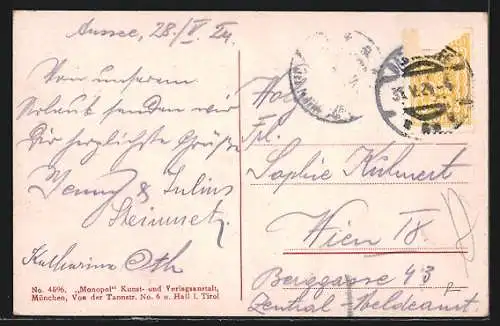 Aussee, 28./V. 24.
Von unserem
Urlaub senden wir
Dir herzlichste Grüße
Jenny & Julius
Steinmetz
Katharina
No. 4896. „Monopol" Kunst- und Verlagsanstalt,
München, Von der Tannstr. No. 6 u. Hall i. Tirol
Frl.
Sophie Kühnert
Wien
Berggasse 43
Zentral-Meldeamt.